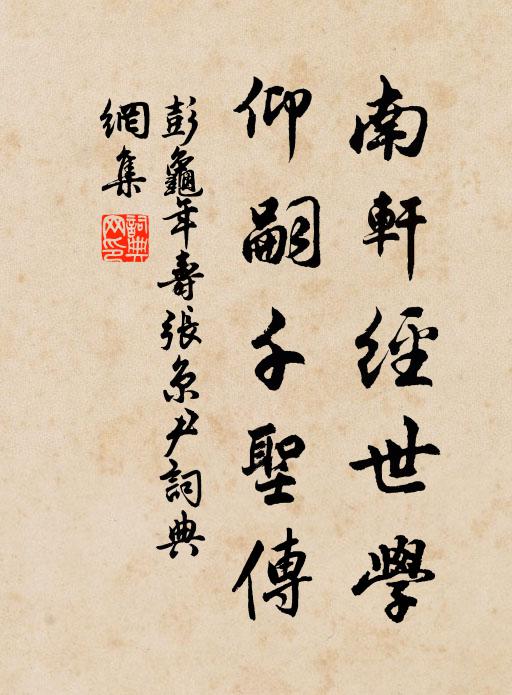 南軒經世學
仰嗣千聖傳
彭龜年壽張京尹詞典
網集
詞典網印